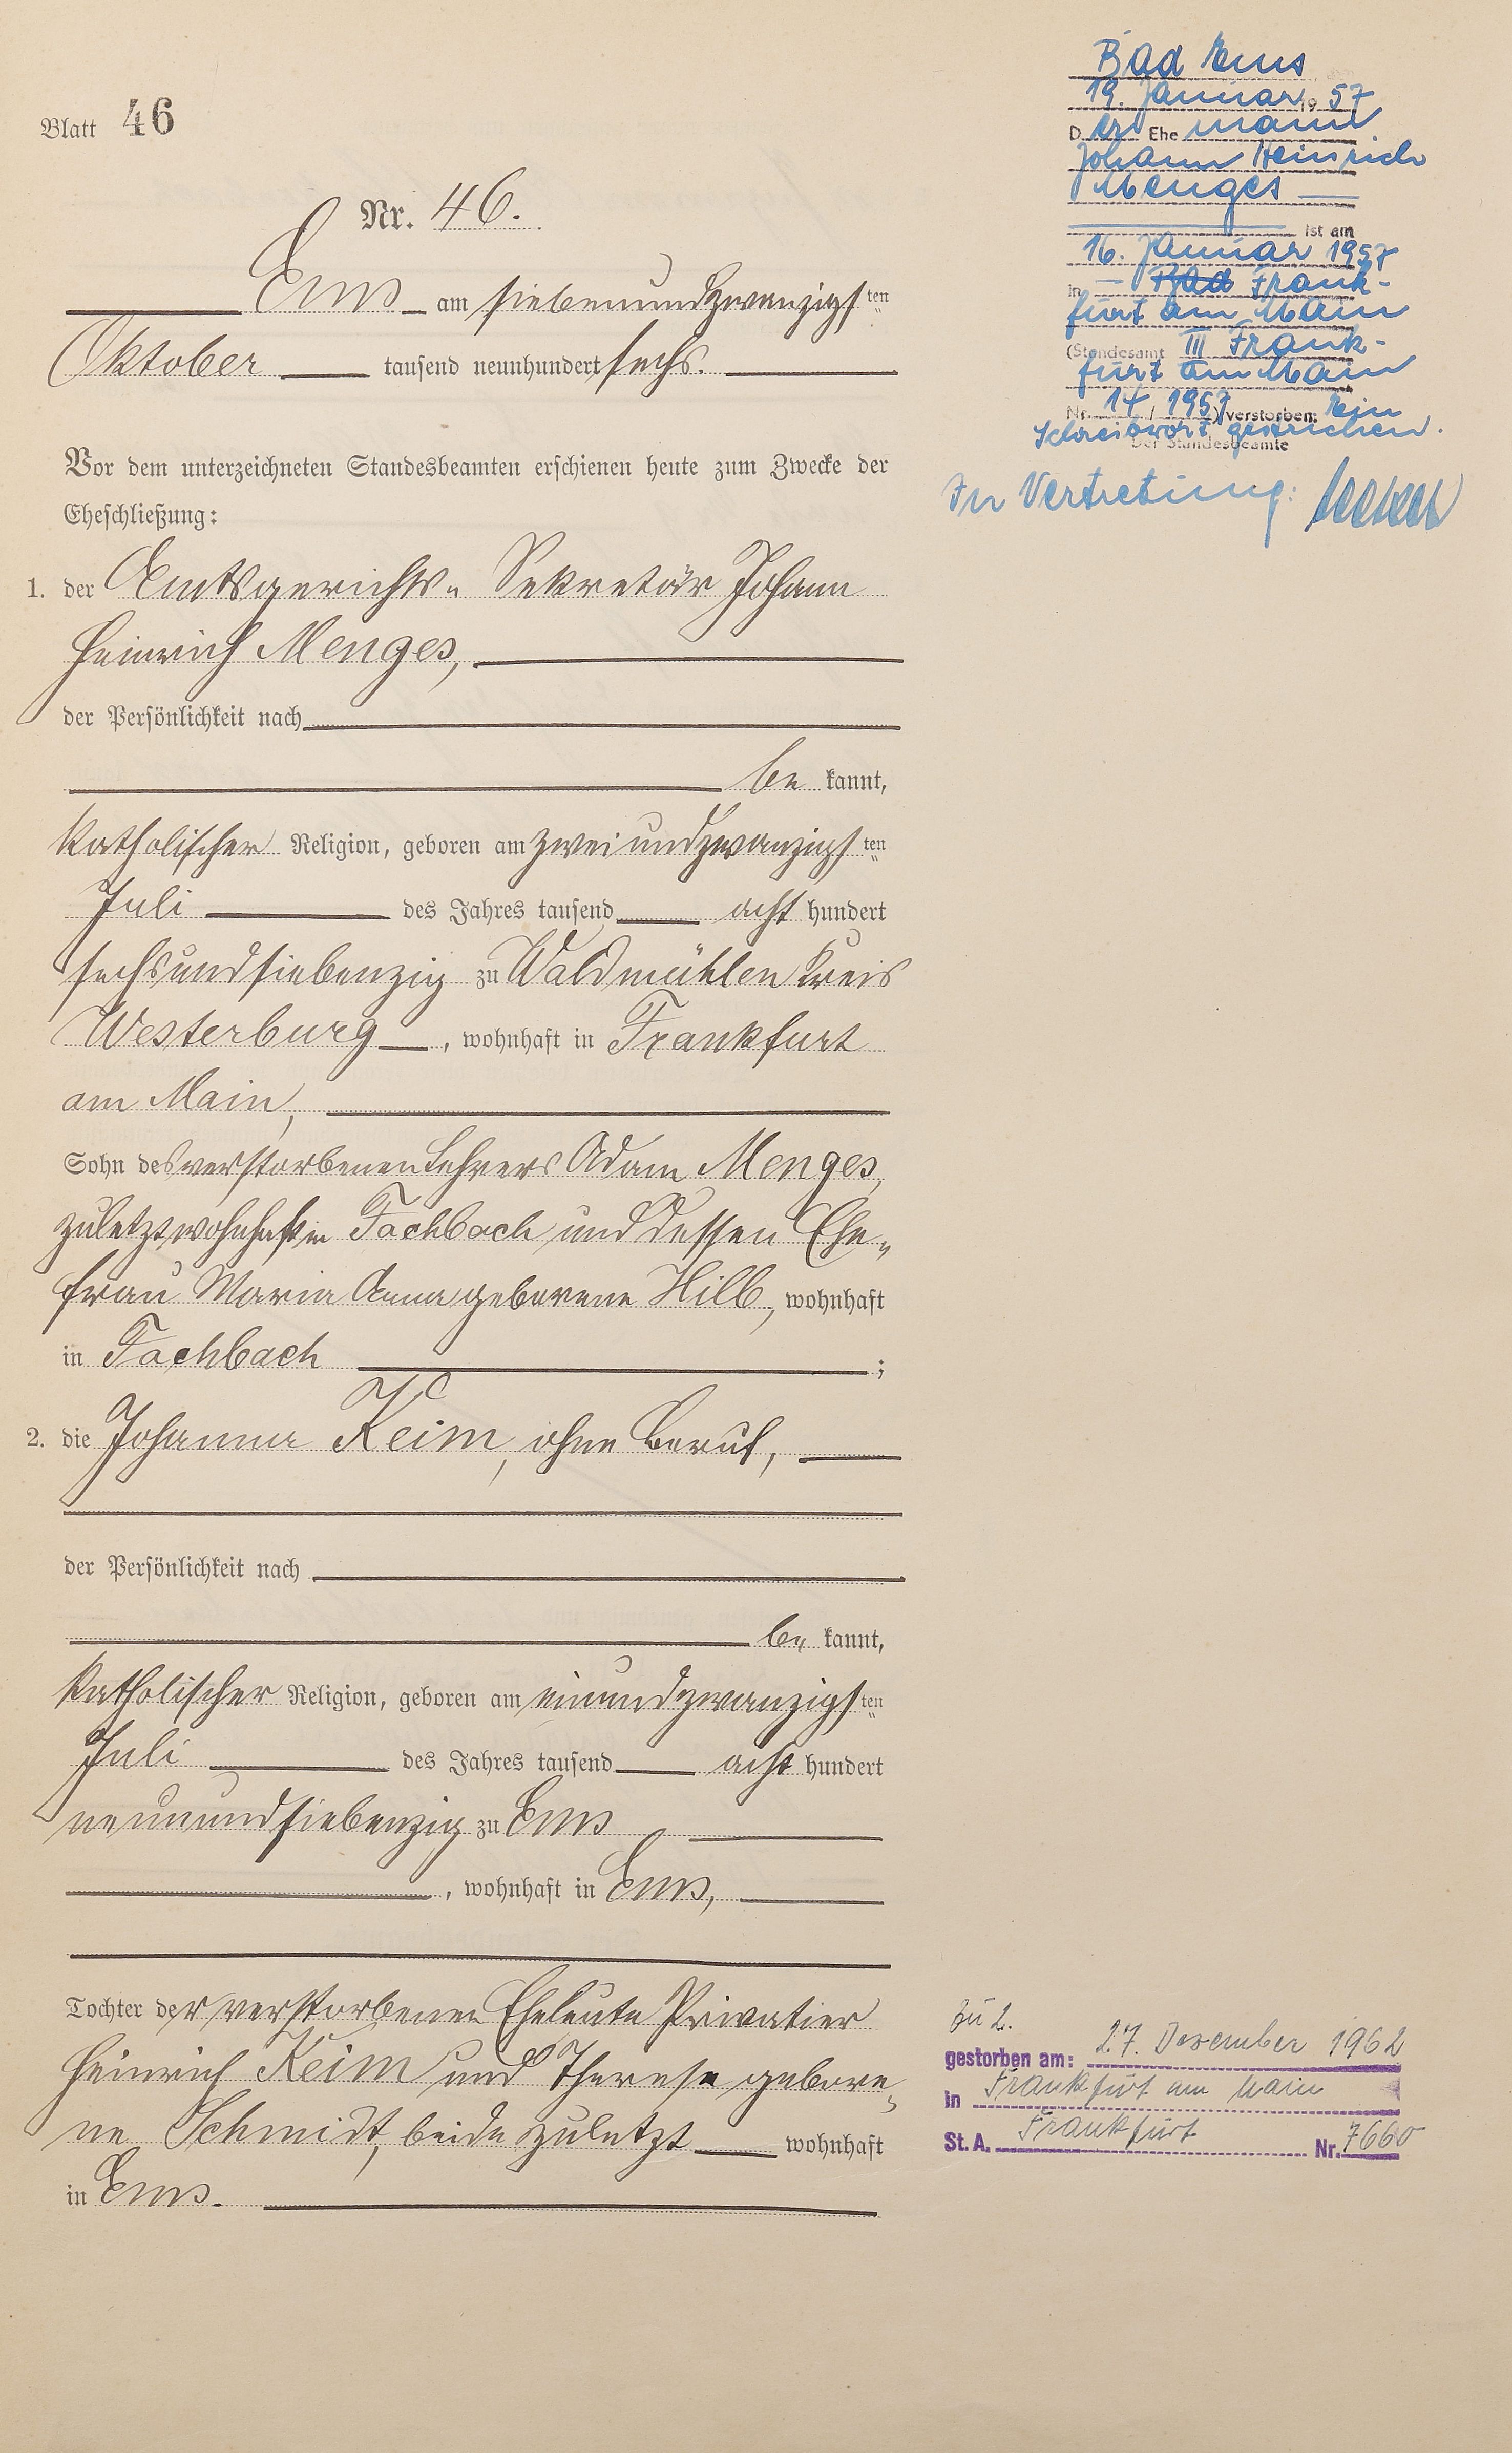 Blatt 46
Nr. 46.
Ems am siebenundzwanzigsten
Oktober tausend neunhundert sechs.
Vor dem unterzeichneten Standesbeamten erschienen heute zum Zwecke der
Eheschließung:
1. der Amtsgerichts- Sekretär Johann
Heinrich Menges,
der Persönlichkeit nach
be kannt,
katholischer Religion, geboren am zweiundzwanzigsten
Juli des Jahres tausend acht hundert
sechsundsiebenzig zu Waldmühlen Kreis
Westerburg, wohnhaft in Frankfurt
am Main,
Sohn des verstorbenen Lehrers Adam Menges,
zuletzt wohnhaft in Fachbach und dessen Ehe-
frau Maria Anna geborene Hilb, wohnhaft
in Fachbach ;
2. die Johanna Keim, ohne Beruf,
der Persönlichkeit nach
be kannt,
katholischer Religion, geboren am einundzwanzigsten
Juli des Jahres tausend acht hundert
neunundsiebenzig zu Ems
, wohnhaft in Ems,
Tochter der verstorbenen Eheleute Privatier
Heinrich Keim und Therese gebore-
ne Schmidt, beide zuletzt wohnhaft
in Ems.
Bad Ems
19. Januar 1957
Der Ehemann
Johann Heinrich
Menges
ist am
16. Januar 1957
in Bad Frank-
furt am Main
(Standesamt III Frank-
furt am Main
Nr. 14 / 1957) verstorben. Ein
Schreibwort gestrichen.
Der Standesbeamte
In Vertretung:
Zu 2.
gestorben am: 27. Dezember 1962
in Frankfurt am Main
St. A. Frankfurt Nr. 7660